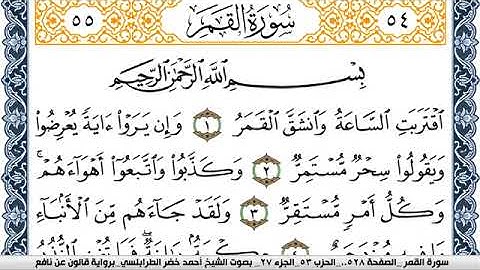 ٥٥ سُورَةُ القَمَرِ ٥٤
بِسْمِ اللَّهِ الرَّحْمَٰنِ الرَّحِيمِ
اَقْتَرَبَتِ السَّاعَةُ وَانشَقَّ الْقَمَرُ ١ وَإِن يَرَوْاْ ءَايَةً يُعْرِضُواْ
وَيَقُولُواْ سِحْرٌ مُّسْتَمِرٌّ ٢ وَكَذَّبُواْ وَاتَّبَعُواْ أَهْوَاءَهُمْ
وَكُلُّ أَمْرٍ مُّسْتَقِرٌّ ٣ وَلَقَدْ جَاءَهُم مِّنَ الْأَنْبَاءِ
سورة القمر _الصفحة ٥٢٨_ الحزب ٥٣_الجزء ٢٧_ بصوت الشيخ أحمد خضر الطرابلسي_برواية قالون عن نافع